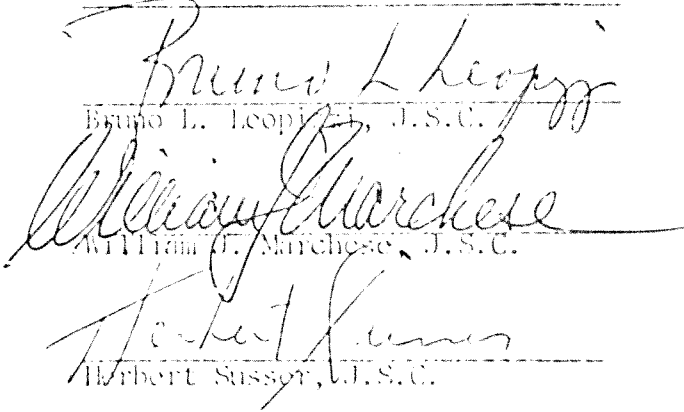 Bruno L Leopizzi
Bruno L. Leopizzi, J.S.C.
William J Marchese
William J. Marchese, J.S.C.
Herbert Susser
Herbert Susser, J.S.C.